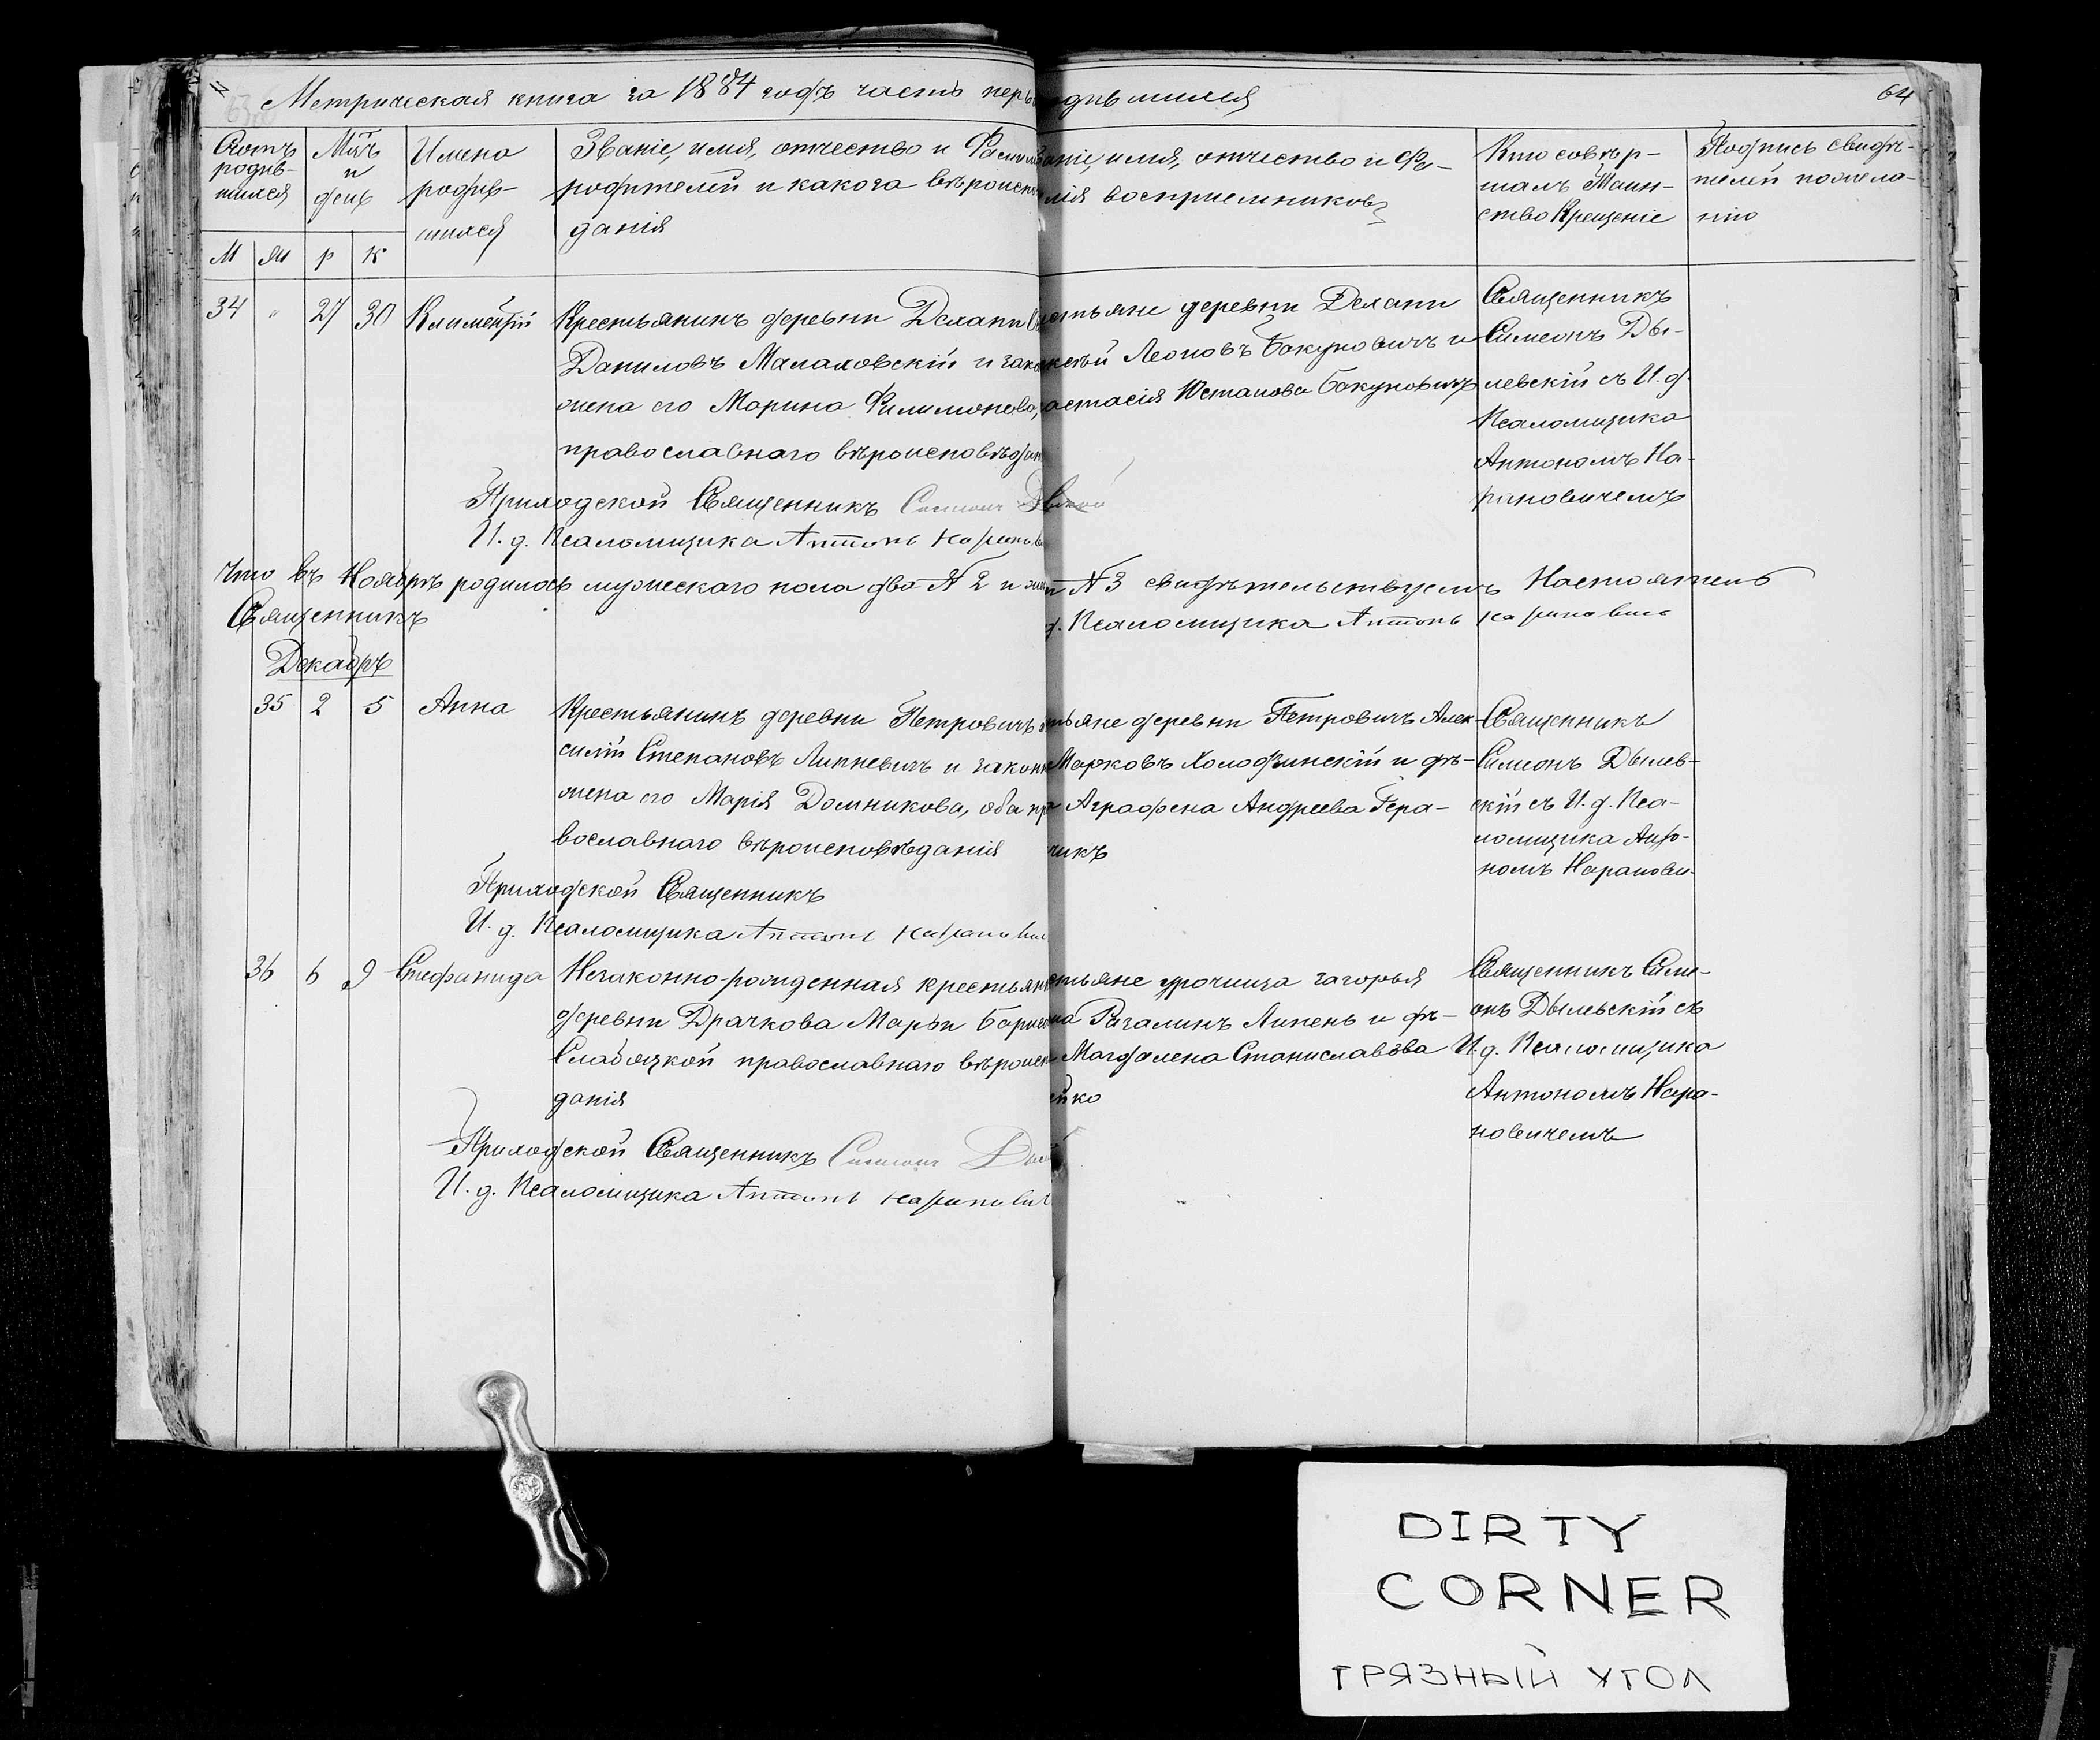 Метрическая книга за 1884 годъ часть перв одившихся
64
Счотъ родив-шихся
М ж
Мѣць и день
р к
Имена родив-шихся
Званіе, имя, отчество и Фамил
родителей и какого вѣроиспо
данія
аніе, имя, отчество и Фа-
лія восприемниковъ
Кто совер-
шалъ Таин-
ство Крещеніе
Подпись свидѣ-
телей пожела-
нію
34 " 27 30 Климентій
Крестьянинъ деревни
Даниловъ Малаховскій и зако
жена его Марина Филимонова,
православнаго вѣроисповѣдан
естьяне деревни
ксѣй Леоновъ Бакуновичъ и
астасія Бакуновичъ
Священникъ
Симеонъ Ды-
левскій съ И. д.
Псаломщика
Антономъ На-
рановичемъ
Приходской Священникъ Симеонъ
И. д. Псаломщика Антонъ Наранов
Что въ Ноябрѣ родилось мужескаго пола два № 2 и № 3 свидѣтельствуемъ Настоятель
Священникъ
д. Псаломщика Антонъ Нарановичъ
Декабрь
35 2 5 Анна
Крестьянинъ деревни Петровичъ
силій Степановъ Липневичъ и закон
жена его Марія Домникова, оба пра
вославнаго вѣроисповѣданія
тьяне деревни Петровичъ Алек-
Марковъ Холодзинскій и дѣ-
Аграфена Андреева Гера-
чикъ
Священникъ
Симеонъ Дылев-
скій съ И. д. Пса-
ломщика Анто-
номъ Наранови-
Приходской Священникъ
И. д. Псаломщика Антонъ Наранович
36 6 9 Стефанида
Незаконно-рожденная крестьян
деревни Драчкова Марьи
Слабоцкой православнаго вѣроисп
данія
стьяне урочища Загорья
Липень и дѣ-
Магдалена Станиславова
йко
Священникъ Симе-
онъ Дылевскій съ
И. д. Псаломщика
Антономъ Нара-
новичемъ
Приходской Священникъ Симеонъ
И. д. Псаломщика Антонъ Нарановичъ
DIRTY
CORNER
ГРЯЗНЫЙ УГОЛ